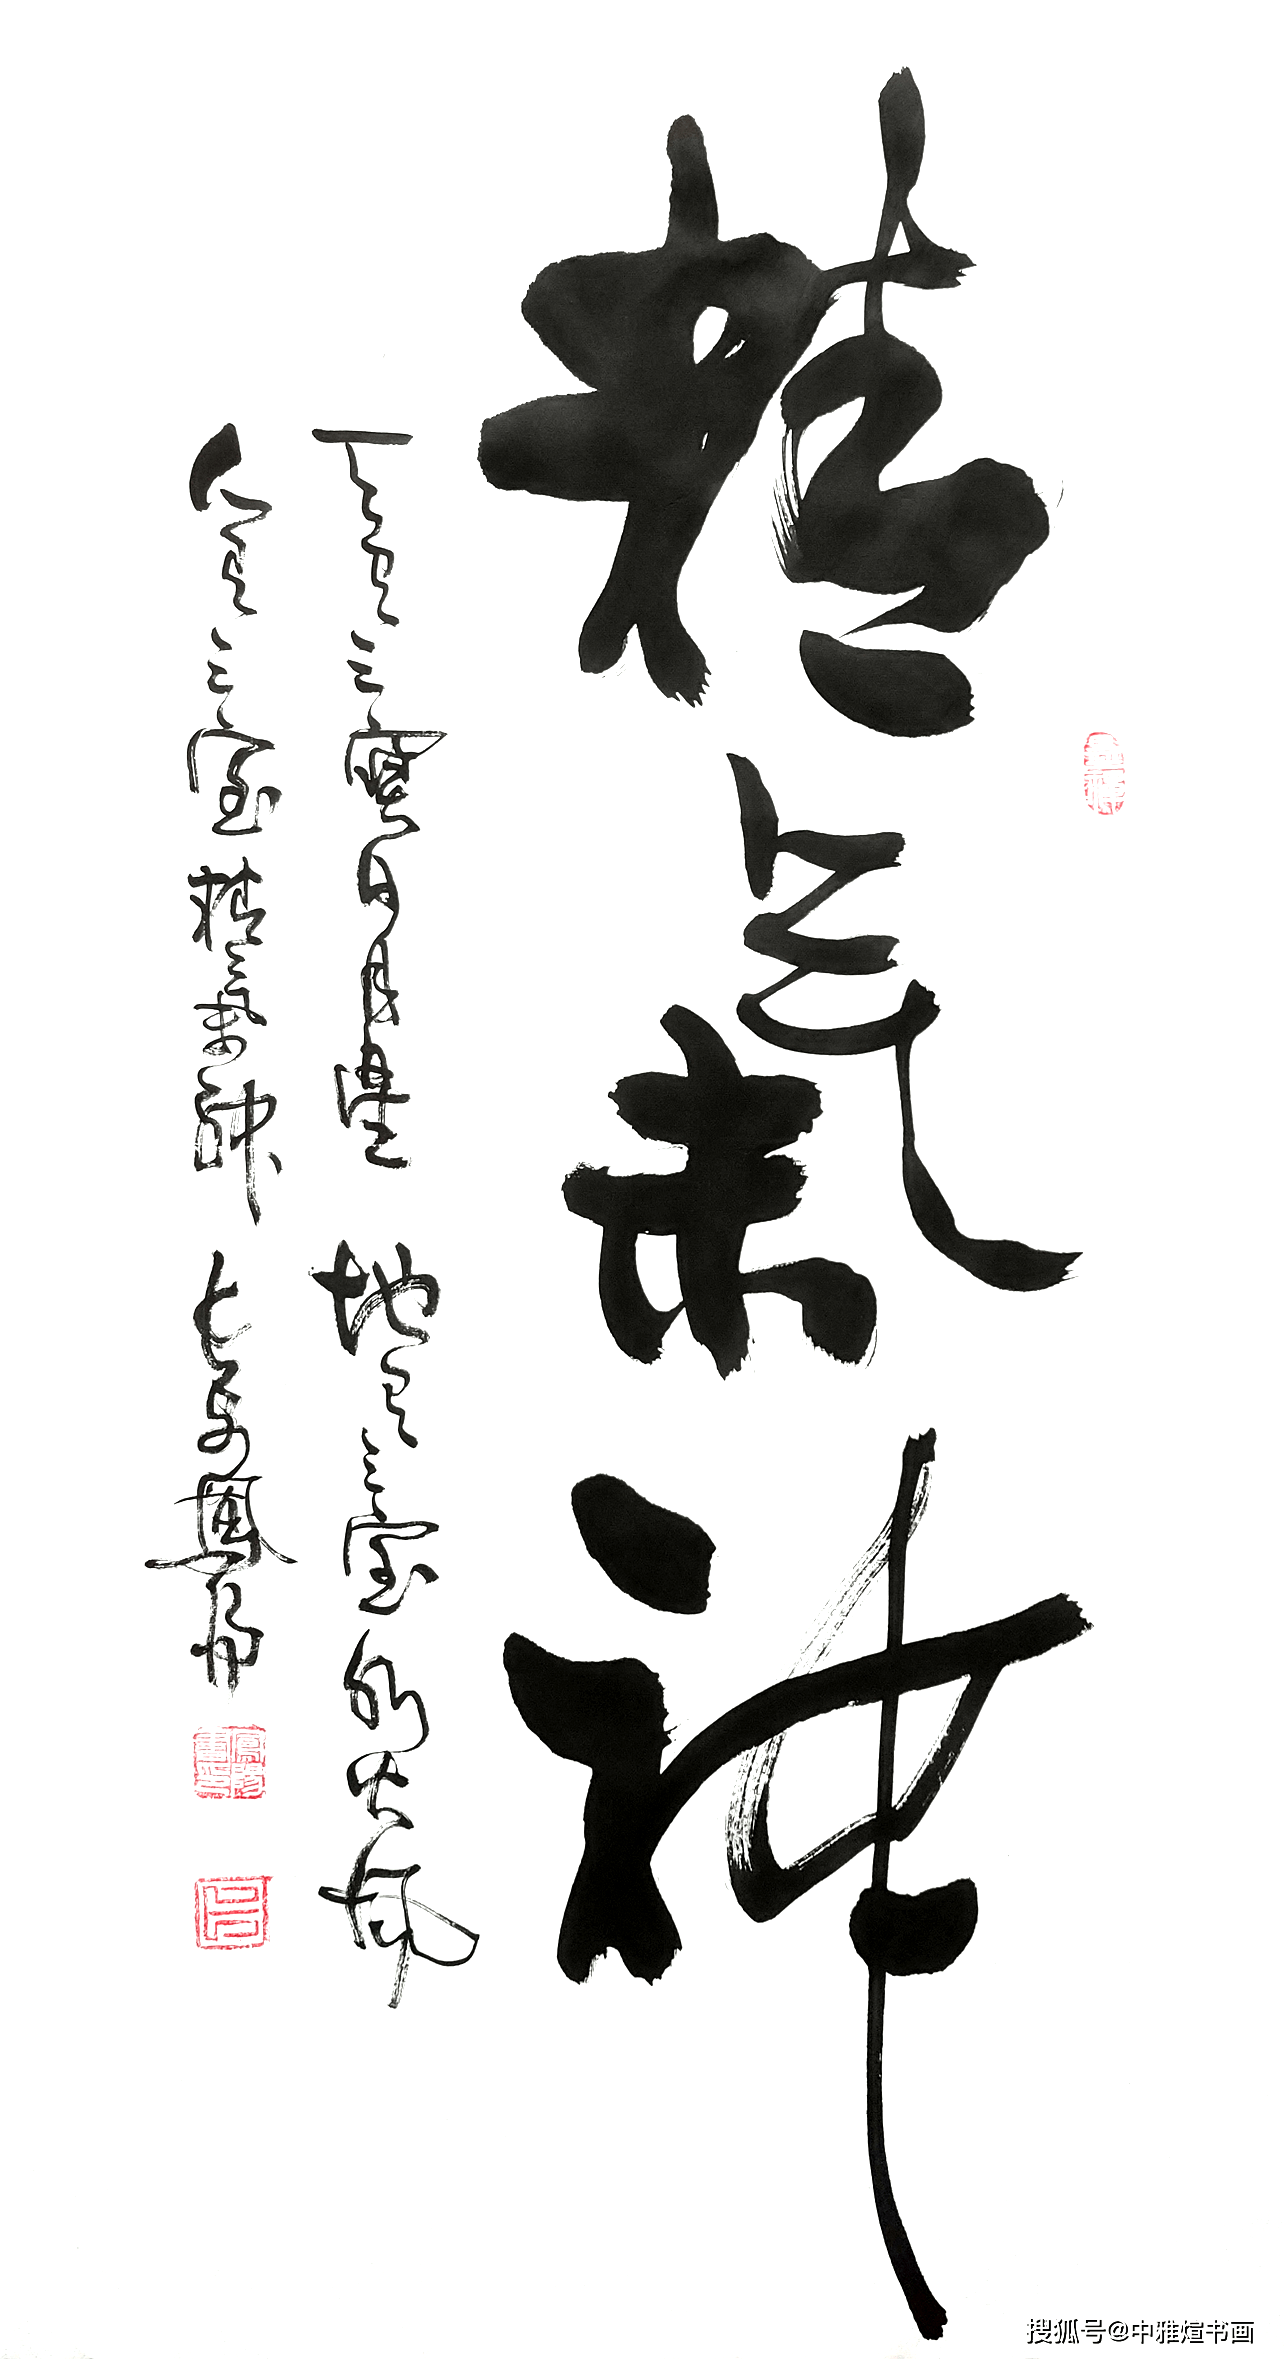 精氣神
天有三寶日月星 地有三宝水火風
人有三宝精氣神
搜狐号@中雅煊书画